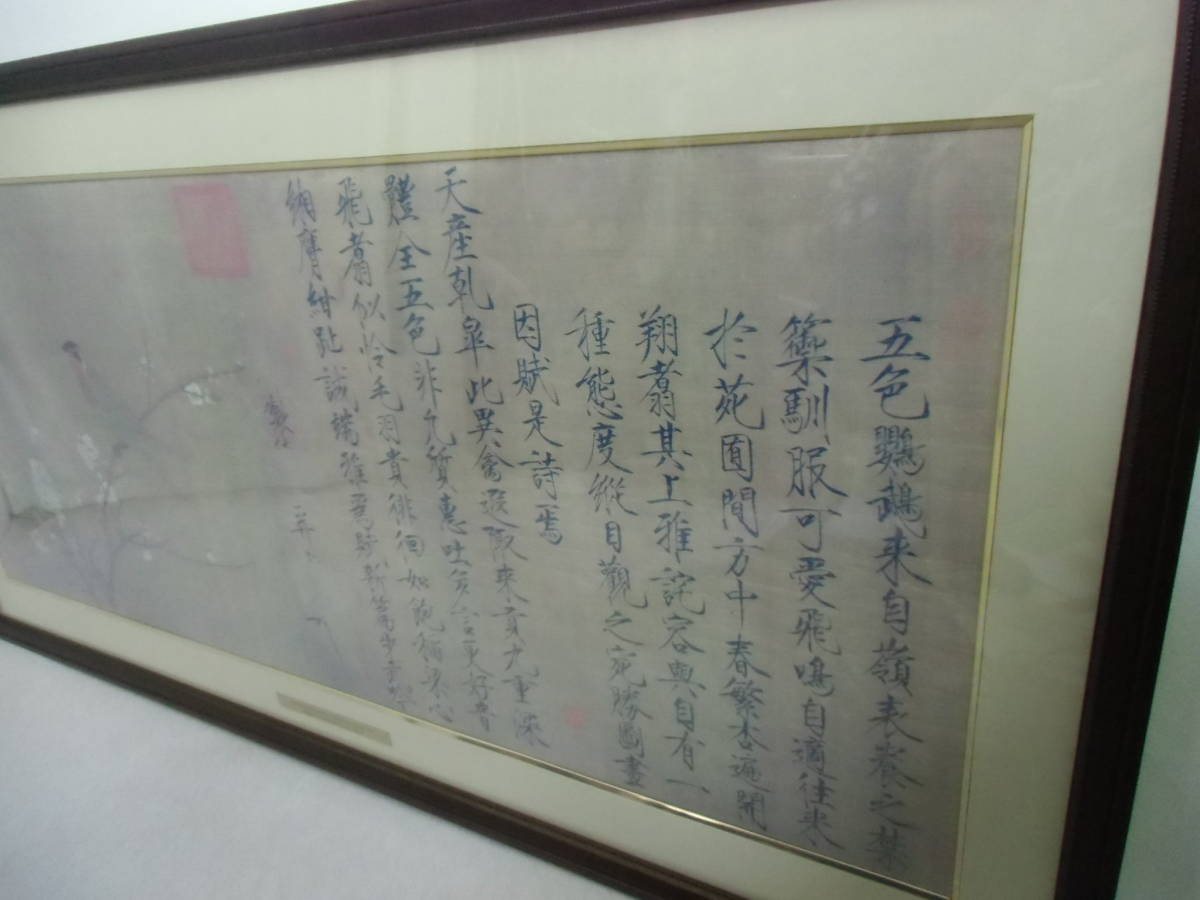 五色鸚鵡來自嶺表養之禁
籞馴服可愛飛鳴自適往來
於苑囿間方中春繁杏遍開
翔翥其上雅詫容與自有一
種態度縱目觀之宛勝圖畫
因賦是詩焉
天產乾皋此異禽遐陬來貢九重深
體全五色非凡質惠吐多言更好音
飛翥似憐毛羽貴徘徊如飽稻粱心
緗膺紺趾誠端雅為賦新篇步武